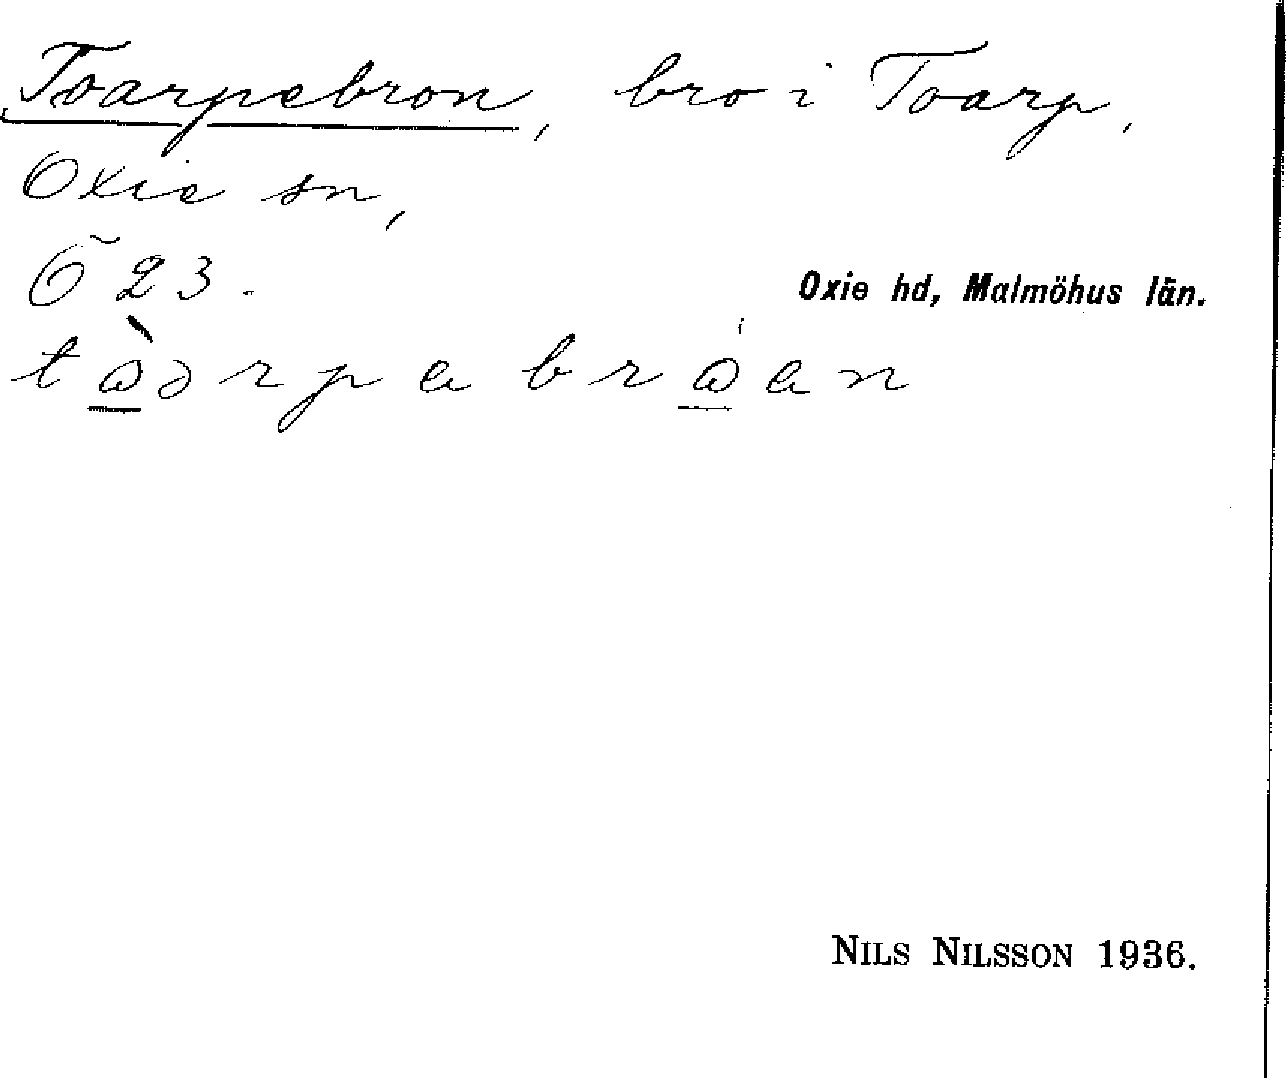 Toarpebron, bro i Toarp,
Oxie sn,
Õ 23.
Oxie hd, Malmöhus län.
NILS NILSSON 1936.